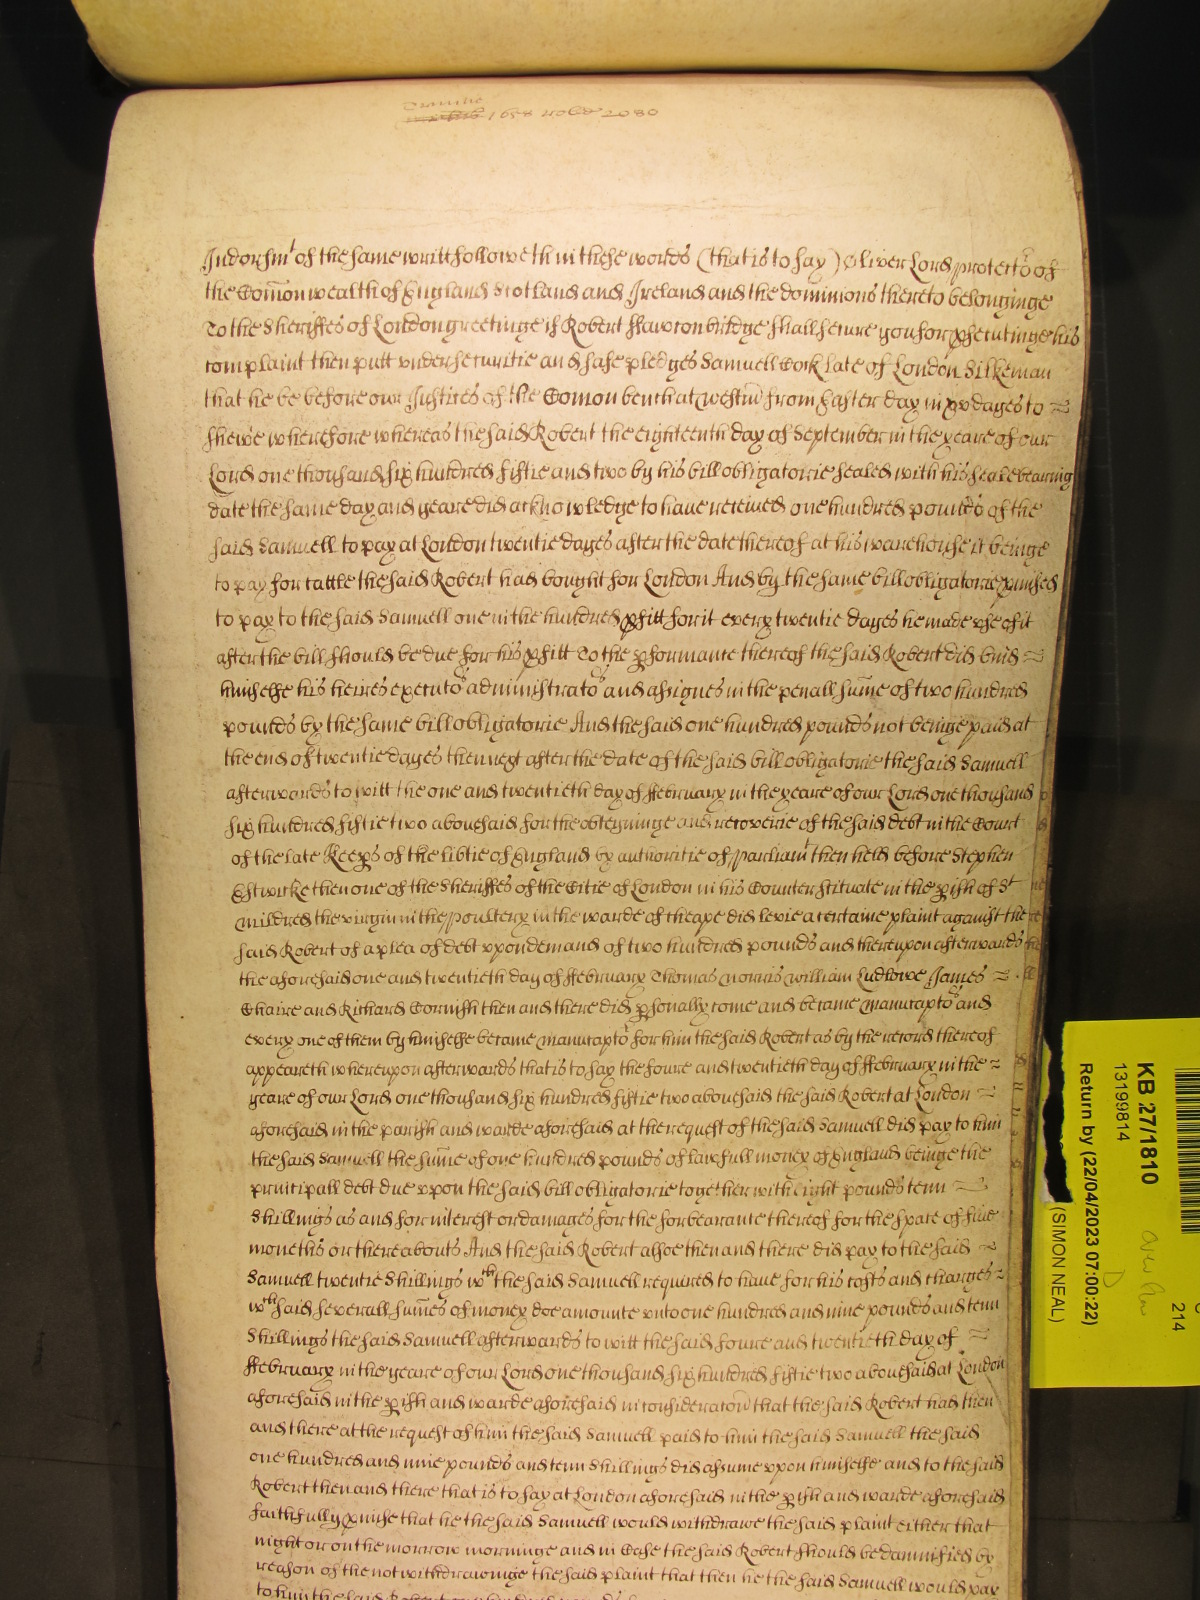 1658 2080
Indorsmt of the same writt followeth in these words (that is to say) Oliver Lord protector of
the Comon wealth of England Scotland and Ireland and the dominions thereto belonginge
To the Sheriffes of London greetinge if Robert ffawtonbridge shall secure you for psecutinge his
complaint then putt under securitie and safe pledges Samuell Cork late of London Silkeman
that he be before our Justices of the Comon bench at Westm from Easter day in xv dayes to
shewe wherefore whereas the said Robert the eighteenth day of September in the yeare of our
Lord one thousand six hundred fiftie and two by his bill obligatorie sealed with his seale bearing
date the same day and yeare did acknowledge to have received one hundred pounds of the
said Samuell to pay at London twentie dayes after the date thereof at his warehouse it beinge
to pay for cattle the said Robert had bought for London And by the same bill obligatorie pmised
to pay to the said Samuell one in the hundred pfitt for it every twentie dayes he made use of it
after the bill should be due for his pfitt To the pformance thereof the said Robert did bind
himselfe his heires executors administrators and assignes in the penall sume of two hundred
pounds by the same bill obligatorie And the said one hundred pounds not beinge paid at
the end of twentie dayes then next after the date of the said bill obligatorie the said Samuell
afterwards to witt the one and twentieth day of ffebruary in the yeare of our Lord one thousand
six hundred fiftie two abovesaid for the obteyninge and recoverie of the said debt in the Court
of the late Keeps of the libtie of England by authoritie of Parliamt then held before Stephen
Estwicke then one of the Sheriffes of the Citie of London in his Counter scituate in the pish of St
Mildred the virgin in the Poultery in the warde of Cheape did levie a certaine plaint against the
said Robert of a plea of debt upon demand of two hundred pounds and thereupon afterwards
the aforesaid one and twentieth day of ffebruary Thomas Norris William Ludlowe James
Chaire and Richard Cornish then and there did psonally come and became manucaptors and
every one of them by himselfe became manucaptor for him the said Robert as by the record thereof
appeareth whereupon afterwards that is to say the foure and twentieth day of ffebruary in the
yeare of our Lord one thousand six hundred fiftie two abovesaid the said Robert at London
aforesaid in the parish and warde aforesaid at the request of the said Samuell did pay to him
the said Samuell the sume of one hundred pounds of lawfull money of England beinge the
principall debt due upon the said bill obligatorie together with eight pounds tenn
shillings as and for interest or damages for the forbearance thereof for the space of five
moneths or thereabouts And the said Robert alsoe then and there did pay to the said
Samuell twentie shillings wch the said Samuell required to have for his costs and charges
wch said severall sumes of money doe amounte unto one hundred and nine pounds and tenn
shillings the said Samuell afterwards to witt the said foure and twentieth day of
ffebruary in the yeare of our Lord one thousand six hundred fiftie two abovesaid at London
aforesaid in the pish and warde aforesaid in consideracon that the said Robert had then
and there at the request of him the said Samuell paid to him the said Samuell the said
one hundred and nine pounds and tenn shillings did assume upon himselfe and to the said
Robert then and there that is to say at London aforesaid in the pish and warde aforesaid
faithfully pmise that he the said Samuell would withdrawe the said plaint either that
night or on the morrow morninge and in Case the said Robert should be damnified by
reason of the not withdrawinge the said plaint that then he the said Samuell would pay
to him the said Robert
KB 27/1810
13199814
Return by (22/04/2023 07:00:22)
(SIMON NEAL)
214